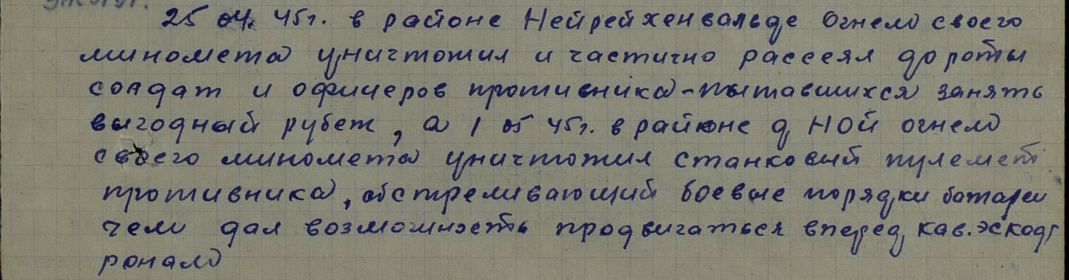 25 04. 45г. в районе Нейрейхенвальде огнем своего
миномета уничтожил и частично рассеял до роты
солдат и офицеров противника-пытавшихся занять
выгодный рубеж, а 1 05 45г. в районе д. Ной огнем
своего миномета уничтожил станковый пулемет
противника, обстреливающий боевые порядки батареи
чем дал возможность продвигаться вперед кав. эскад
ронам